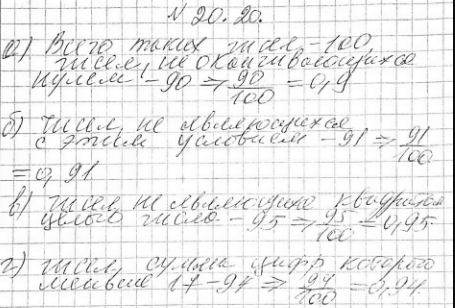 N 20.20.
а) Всего таких чисел - 100,
чисел, не оканчивающихся
нулем - 90 ⇒ 90/100 = 0,9
б) чисел, не являющихся
с этим условием - 91 ⇒ 91/100
= 0,91
в) чисел не являющихся квадратом
целого числа - 95 ⇒ 95/100 = 0,95.
г) чисел, сумма цифр которого
меньше 17 - 94 ⇒ 94/100 = 0,94.